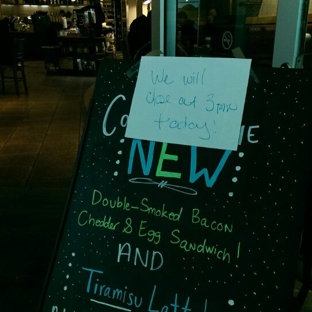 We will
close at 3pm
today!
NEW
Double-Smoked Bacon
Cheddar & Egg Sandwich!
AND
Tiramisu